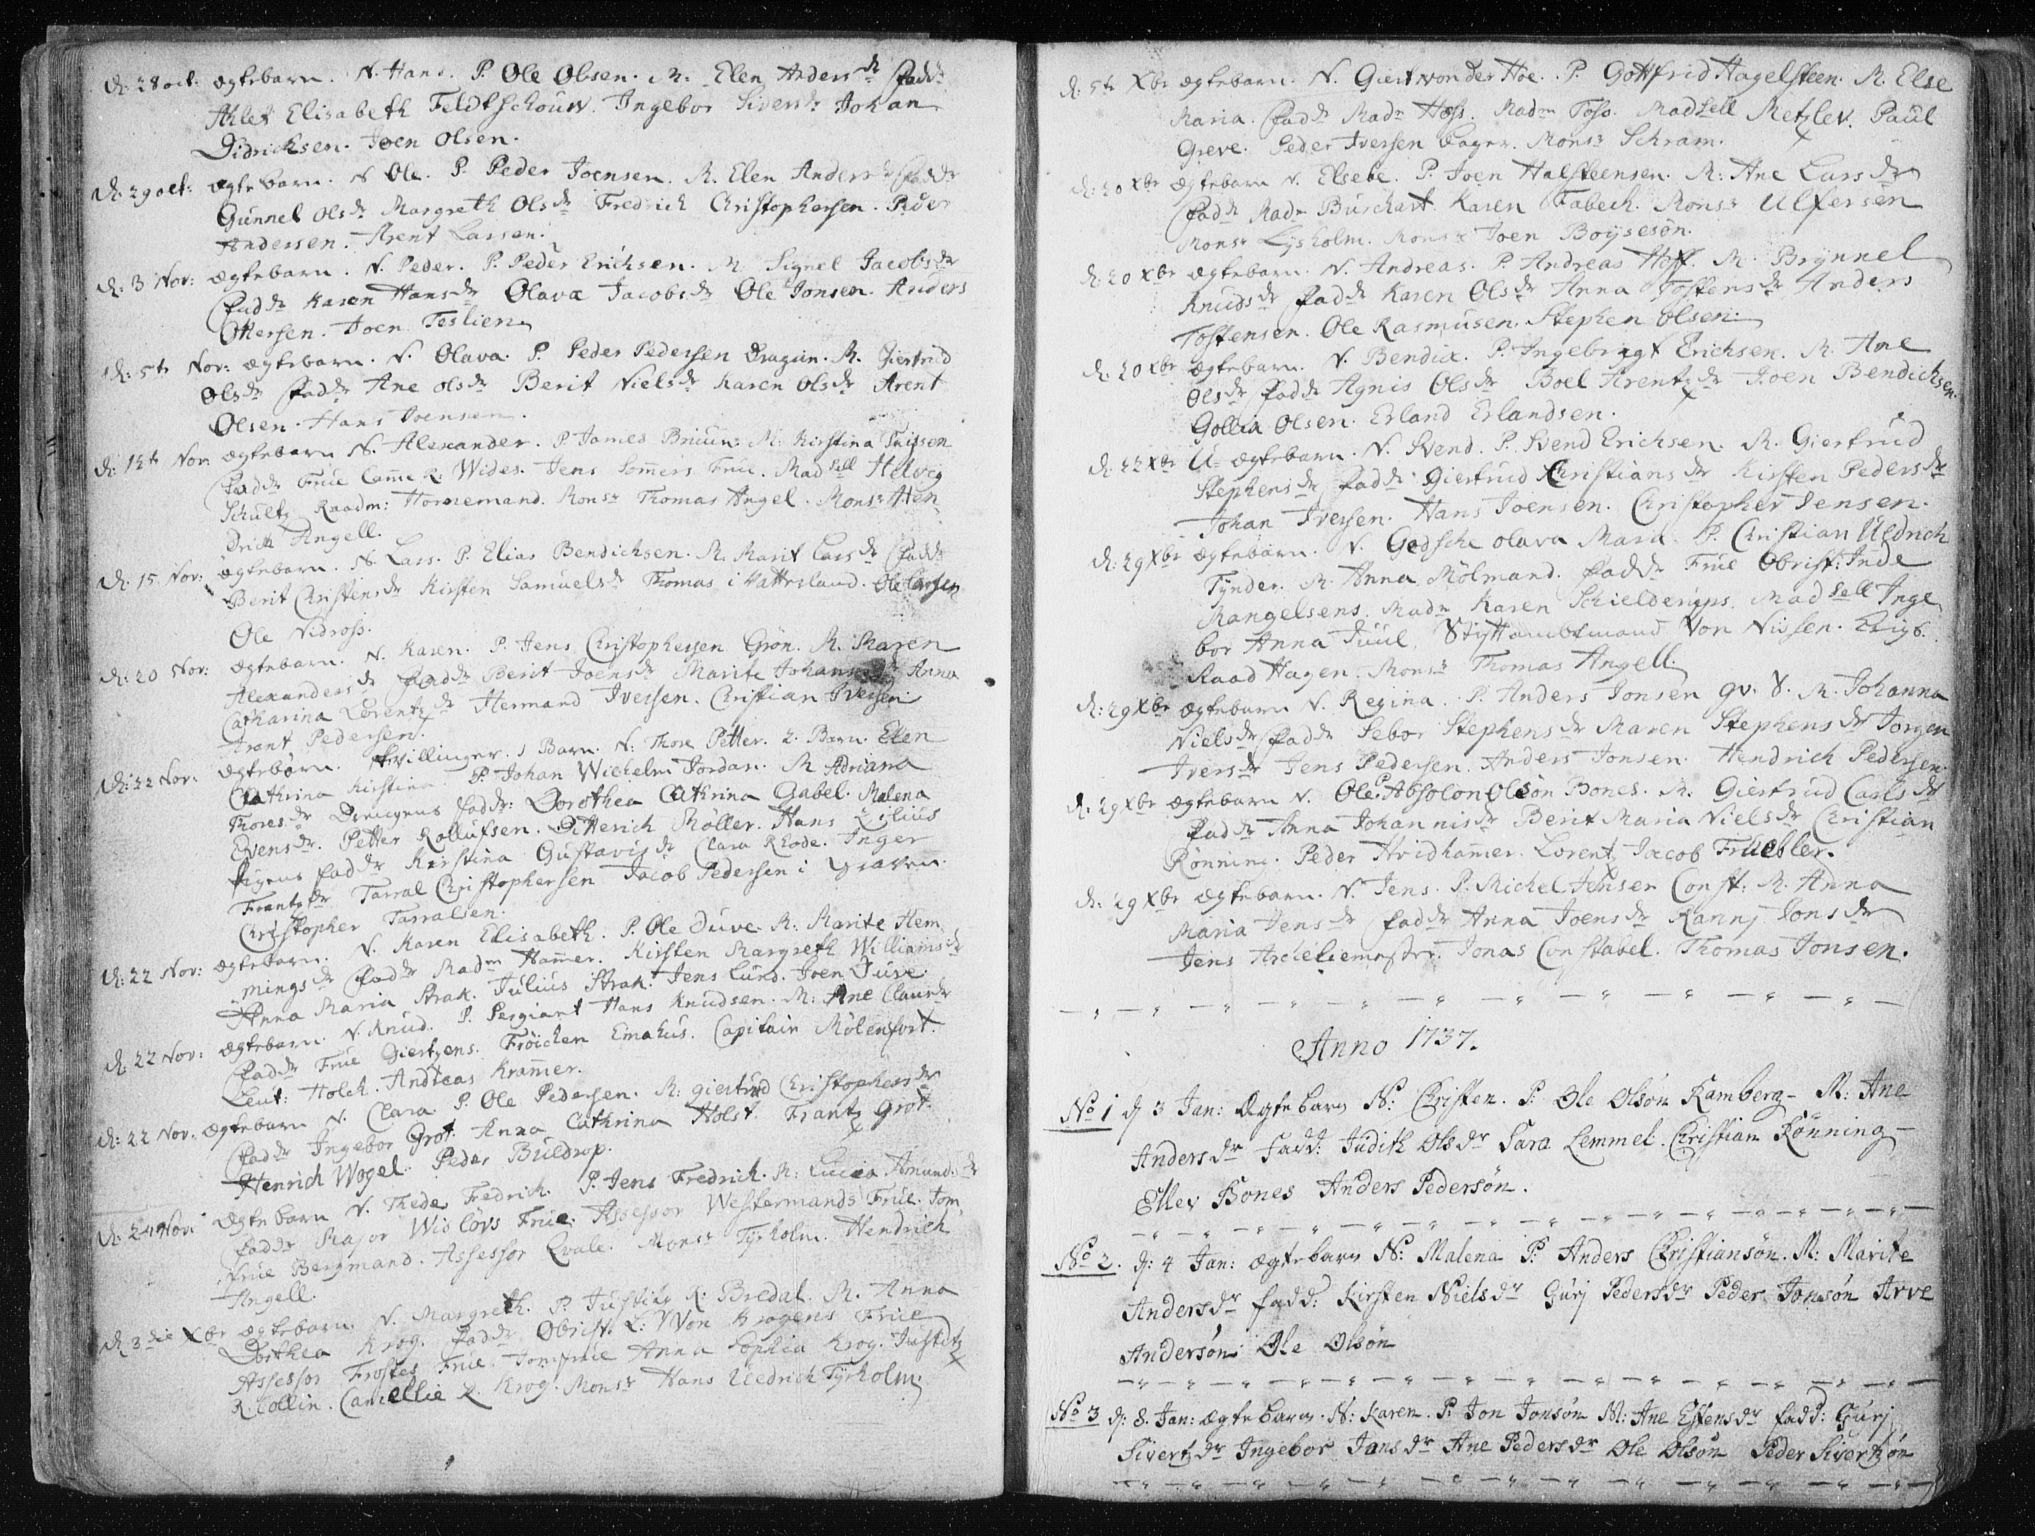 d: 28 oct: ægtebarn. N. Hans. P. Ole Olsen. M. Elen Andersdr fadd:
Ahlet Elisabeth Feldtschouw. Ingebor Siversdr Johan
Didricksen. Joen Olsen.
d: 29 oct: ægtebarn. N Ole. P. Peder Joensen. M. Elen Andersdr fadd:
Gunnel Olsdr Margreth Olsdr Fredrich Christophersen. Peder
Andersen. Arent Larsen.
d: 3 Nov: ægtebarn. N. Peder. P. Peder Erichsen. M Signel Jacobsdr
fadd: Karen Hansdr Olava Jacobsdr Ole Jonsen. Anders
Ottersen. Joen Teslien.
d: 5te Nov: ægtebarn. N. Olava. P. Peder Pedersen Dragun. M. Giertrud
Olsdr fadd: Ane Olsdr Berit Nielsdr Karen Olsdr Arent
Olsen. Hans Joensen.
d: Nov: ægtebarn N. Alexander. P. James Bruun: M. Kirstina
fadd: Frue Came R: Wides. Jens Somers Frue. Madsell Helveg
Schultz Raadm: Hornemand. Monsr Thomas Angel. Monsr Hen
drich Angell.
d: 15 Nov: ægtebarn. N. Lars. P. Elias Bendichsen. M. Marit Larsdr fadd:
Berit Christensdr Kirsten Samuelsdr Thomas i Ole Larsen
Ole Nidross.
d: 20 Nov: ægtebarn. N. Karen. P. Jens Christophersen Grön. M. Maren
Alexandersdr fadd: Berit Joensdr Marite Johansdr Anna
Catharina Lorentzdr Hermand Iversen. Christian Iversen
Arent Pedersen.
d: 22 Nov: ægtebørn. tvillinger. 1 Barn. N: Thore Petter. 2. Barn. Elen
Cathrina Kirstina. P. Johan Wichelm Jordan. M Adriana
Thoresdr Drengens fadd: Dorothea Cathrina Gabel. Malena
Evensdr. Petter Rollufsen. Ditterich Møller. Hans Lilius
Pigens fadd: Kirstina Gustavisdr Clara Rhode. Inger
Frantzdr Tarral Christophersen Jacob Pedersen i Graven.
Christopher Tarralsen.
d: 22 Nov: ægtebarn. N. Karen Elisabeth. P. Ole Duve. M. Marite Hem
mingsdr fadd: Madm Hamer. Kirsten Margreth Williamsdr
Anna Maria Strak. Julius Strak. Jens Lund. Joen Duve.
d: 22 Nov: ægtebarn. N. Knud. P. Sergiant Hans Knudsen. M: Ane Clausdr
fadd: Frue Giertzens. Frøichen Emahus. Capitain Mølenfort.
Leut: Holch. Andreas Kramer.
d: 22 Nov: ægtebarn N. Clara P. Ole Pedersen. M. giertrud Christophersdr
fadd: Ingebor Grot. Anna Cathrina Holst. Frantz Grot.
Henrich Wogel. Peder Buldrop.
d: 24 Nov: ægtebarn N. Thede Fedrich. P. Jens Fredrich. M: Lucia Amundsdr
fadd: Major Widlövs Frue. Assessor Westermands Frue. Jom
frue Bergmand. Assessor Qvale. Monsr Tyrholm. Hendrich
Angell.
d 3die Xbr ægtebarn. N. Margreth. P. Justitz R: Bredal. M. Anna
Dorthea Krog. fadd: Obrist L: Von Krogens Frue
Assessor Frostes Frue. Jomfrue Anna Sophia Krog. Justitz
R Collin. Cancellie R. Krog. Monsr Hans Uldrich Tyrholm.
d: 5te Xbr ægtebarn. N. Giert von der Hoe. P. Gottfrid Hagelsteen. M. Else
Maria. fadd: Madm Hoss. Madm Foss. Madsell Metzlev. Paul
Greve. Peder Iversen bager. Monsr Schram.
d: 20 Xbr ægtebarn N. Elsebe. P. Joen Halsteensen. M: Ane Larsdr
fadd: Madm Burchart Karen Fabech. Monsr Ulfersen
Monsr Lysholm. Monsr Joen Boysesøn.
d: 20 Xbr ægtebarn. N. Andreas. P. Andreas Hoff. M. Brynnel
Knudsdr fadd: Karen Olsdr Anna Tostensdr Anders
Tostensen. Ole Rasmusen. Stephen Olsen.
d: 20 Xbr ægtebarn. N. Bendix. P. Ingebrigt Erichsen. M. Ane
Olsdr fadd: Agnis Olsdr Boel Arentzdr Joen Bendichsen.
Gollia Olsen. Erland Erlandsen.
d: 22 Xbr U- ægtebarn. N. Svend. P. Svend Erichsen. M. Giertrud
Stephensdr fadd: Giertrud Christiansdr Kirsten Pedersdr
Johan Iversen. Hans Joensen. Christopher Jensen.
d: 29 Xbr ægtebarn. N. Godsche Olava Maria. P. Christian Uldrich
Tynder. M. Anna Mölmand. fadd: Frue Obrist: Inde
Mangelsens. Madm Karen Schielderups. Madsell Inge
bor Anna Juul. Stiftambtmand Von Nissen. Krigs
Raad Hagen. Monsr Thomas Angell.
d: 29 Xbr ægtebarn N. Regina. P. Anders Jonsen gv. V. M. Johanna
Nielsdr fadd: Sebor Stephensdr Maren Stephensdr Jorgen
Iversdr Jens Pedersen. Anders Jonsen. Hendrich Pedersen.
d: 29 Xbr ægtebarn N. Ole. P. Absolon Olsön Bones. M. Giertrud Carlsdr
fadd: Anna Johannisdr Berit Maria Nielsdr Christian
Rønning. Peder Hvidhamer. Lorentz Jacob Fruebler.
d: 29 Xbr ægtebarn. N. Jens. P. Michel Jensen Const: M. Anna
Maria Jensdr fadd: Anna Joensdr Rannj Jonsdr
Jens Archeliemester. Jonas Constabel. Thomas Jonsen.
Anno 1737.
No 1 d: 3 Jan: Ægtebarn N: Christen. P: Ole Olsøn Ramberg- M: Ane
Andersdr Fadd: Judith Olsdr Sara Lemmel. Christian Rønning-
Ellev Bones Anders Pedersøn.
No 2. d: 4 Jan: ægtebarn N: Malena P: Anders Christiansøn. M: Marite
Andersdr fadd: Kirsten Nielsdr Gurj Pedersdr Peder Jonsøn Arve
Andersøn: Ole Olsøn
No 3 d: 8. Jan: ægtebarn. N: Karen. P: Jon Jonsøn M: Ane Estensdr fadd: Gurj
Sivertzdr Ingebor Jonsdr Ane Pedersdr Ole Olsøn Peder Sivertzøn